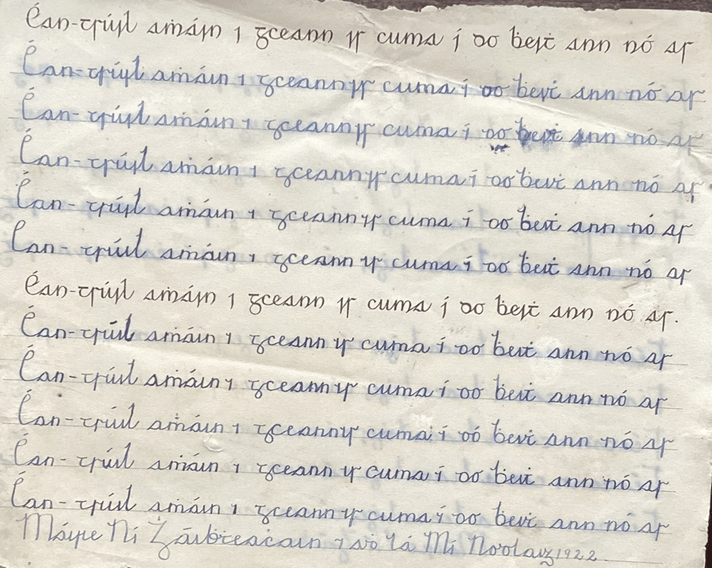 Éan-tsúil aṁáin i gceann is cuma í do ḃeiṫ ann nó as
Éan-tsúil aṁáin i gceann is cuma í do ḃeiṫ ann nó as
Éan-tsúil aṁáin i gceann is cuma í do ḃeiṫ ann nó as
Éan-tsúil aṁáin i gceann is cuma í do ḃeiṫ ann nó as
Éan-tsúil aṁáin i gceann is cuma í do ḃeiṫ ann nó as
Éan-tsúil aṁáin i gceann is cuma í do ḃeiṫ ann nó as
Éan-tsúil aṁáin i gceann is cuma í do ḃeiṫ ann nó as.
Éan-tsúil aṁáin i gceann is cuma í do ḃeiṫ ann nó as
Éan-tsúil aṁáin i gceann is cuma í do ḃeiṫ ann nó as
Éan-tsúil aṁáin i gceann is cuma í dó ḃeiṫ ann nó as
Éan-tsúil aṁáin i gceann is cuma í do ḃeiṫ ann nó as
Éan-tsúil aṁáin i gceann is cuma í do ḃeiṫ ann nó as
Máire Ní lá Mí Nodlag 1922